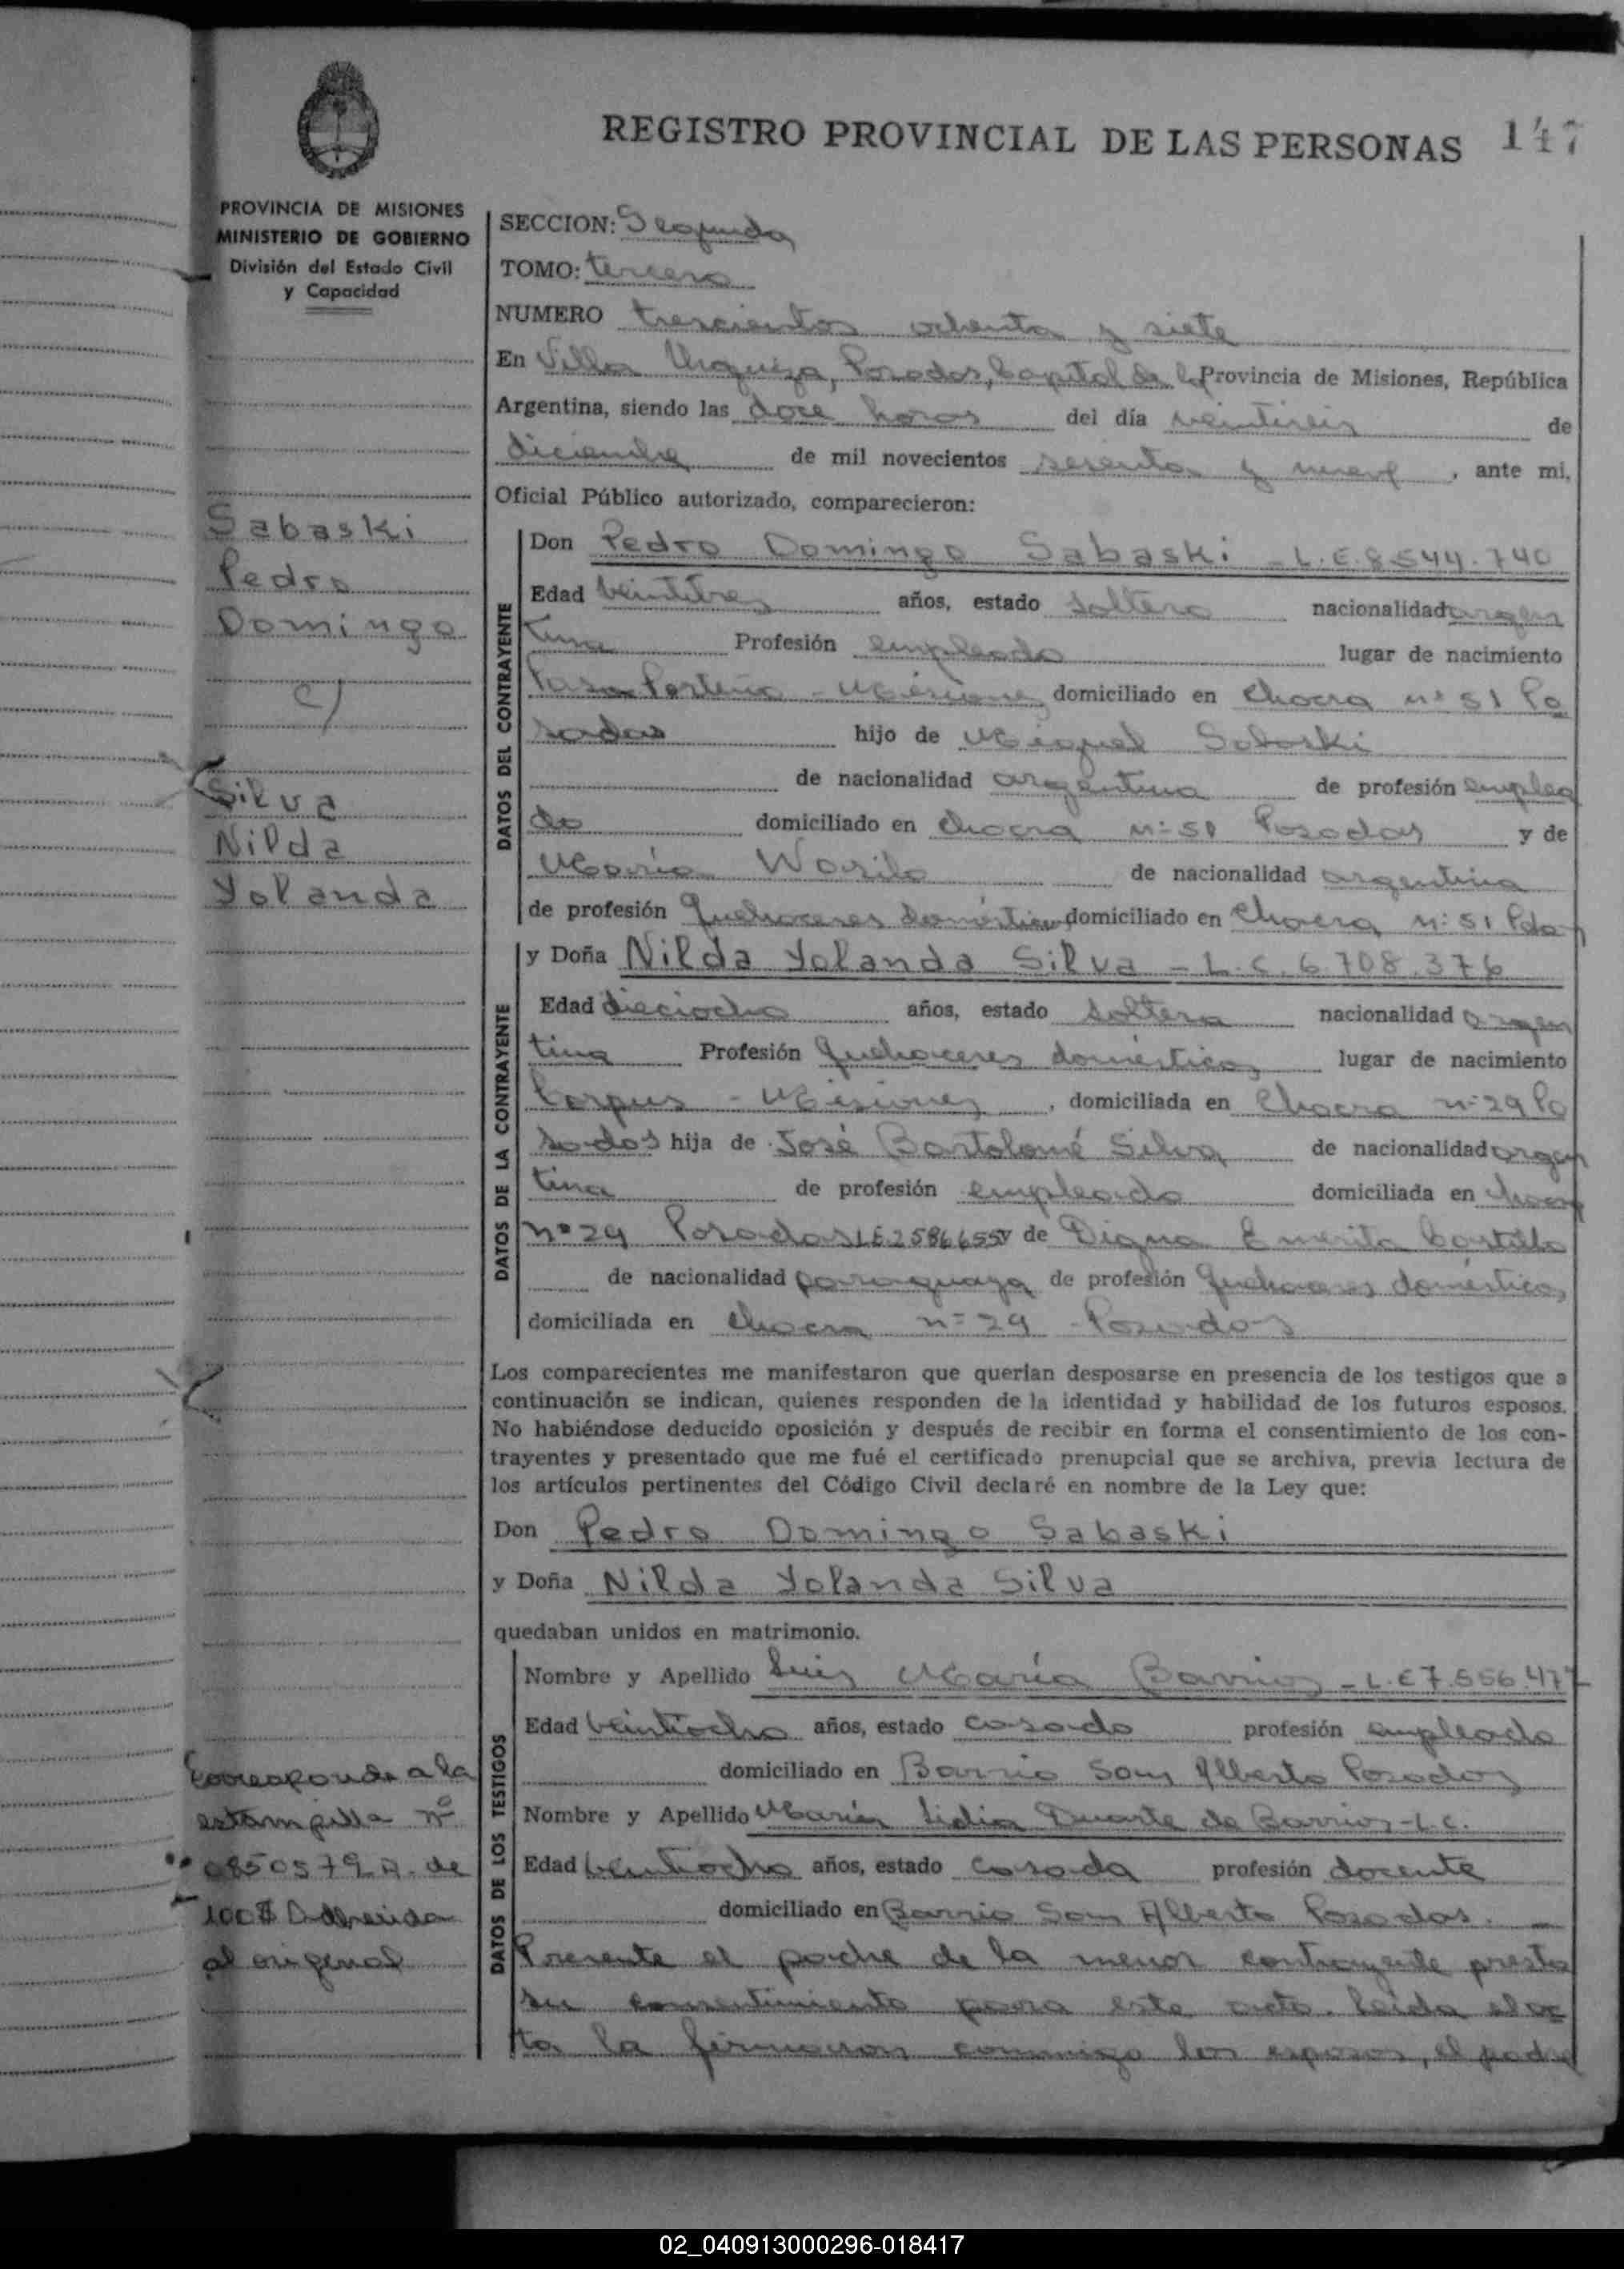 REGISTRO PROVINCIAL DE LAS PERSONAS 147
PROVINCIA DE MISIONES
MINISTERIO DE GOBIERNO
División del Estado Civil
y Capacidad
Sabaski
Pedro
Domingo
c/
Silva
Nilda
Yolanda
Corresponde a la
estampilla Nº
0850579 A. de
100$ Adherida
al original
SECCION: Segunda
TOMO: tercero
NUMERO trescientos ochenta y siete
En Villa Urquiza, Posadas, Capital de la Provincia de Misiones, República
Argentina, siendo las doce horas del día veintiseis de
diciembre de mil novecientos sesenta y nueve, ante mi,
Oficial Público autorizado, comparecieron:
DATOS DEL CONTRAYENTE
Don Pedro Domingo Sabaski - L.E. 8.544.740
Edad veintitres años, estado soltero nacionalidad argen
tina Profesión empleado lugar de nacimiento
Paso Porteño - Misiones domiciliado en Chacra nº 51 Po
sadas hijo de Miguel Sabaski
de nacionalidad argentina de profesión emplea
do domiciliado en chacra nº 51 Posadas y de
María Wasilo de nacionalidad argentina
de profesión Quehaceres domésticos domiciliado en Chacra nº 51 Pdas
DATOS DE LA CONTRAYENTE
y Doña Nilda Yolanda Silva - L.C. 6.708.376
Edad dieciocho años, estado soltera nacionalidad argen
tina Profesión Quehaceres domésticos lugar de nacimiento
Corpus - Misiones, domiciliada en Chacra nº 29 Po
sadas hija de José Bartolomé Silva de nacionalidad argen
tina de profesión empleado domiciliada en chacra
nº 29 Posadas LE 2586655 y de Digna Emerita Castillo
de nacionalidad paraguaya de profesión Quehaceres domésticos
domiciliada en chacra nº 29 - Posadas
Los comparecientes me manifestaron que querían desposarse en presencia de los testigos que a
continuación se indican, quienes responden de la identidad y habilidad de los futuros esposos.
No habiéndose deducido oposición y después de recibir en forma el consentimiento de los con-
trayentes y presentado que me fué el certificado prenupcial que se archiva, previa lectura de
los artículos pertinentes del Código Civil declaré en nombre de la Ley que:
Don Pedro Domingo Sabaski
y Doña Nilda Yolanda Silva
quedaban unidos en matrimonio.
DATOS DE LOS TESTIGOS
Nombre y Apellido Luis María Barrios - L.E 7.556.477
Edad veintiocho años, estado casado profesión empleado
domiciliado en Barrio San Alberto Posadas
Nombre y Apellido María Lidia Duarte de Barrios - L.C.
Edad veintiocho años, estado casada profesión docente
domiciliado en Barrio San Alberto Posadas.
Presente el padre de la menor contrayente presta
su consentimiento para este acto. Leída el ac
ta la firmaron conmigo los esposos, el padre
02_040913000296-018417